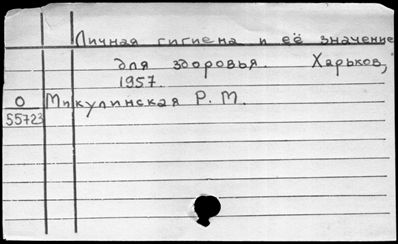 Личная гигиена и её значение
для здоровья. Харьков,
1957.
О Микулинская Р. М.
55723